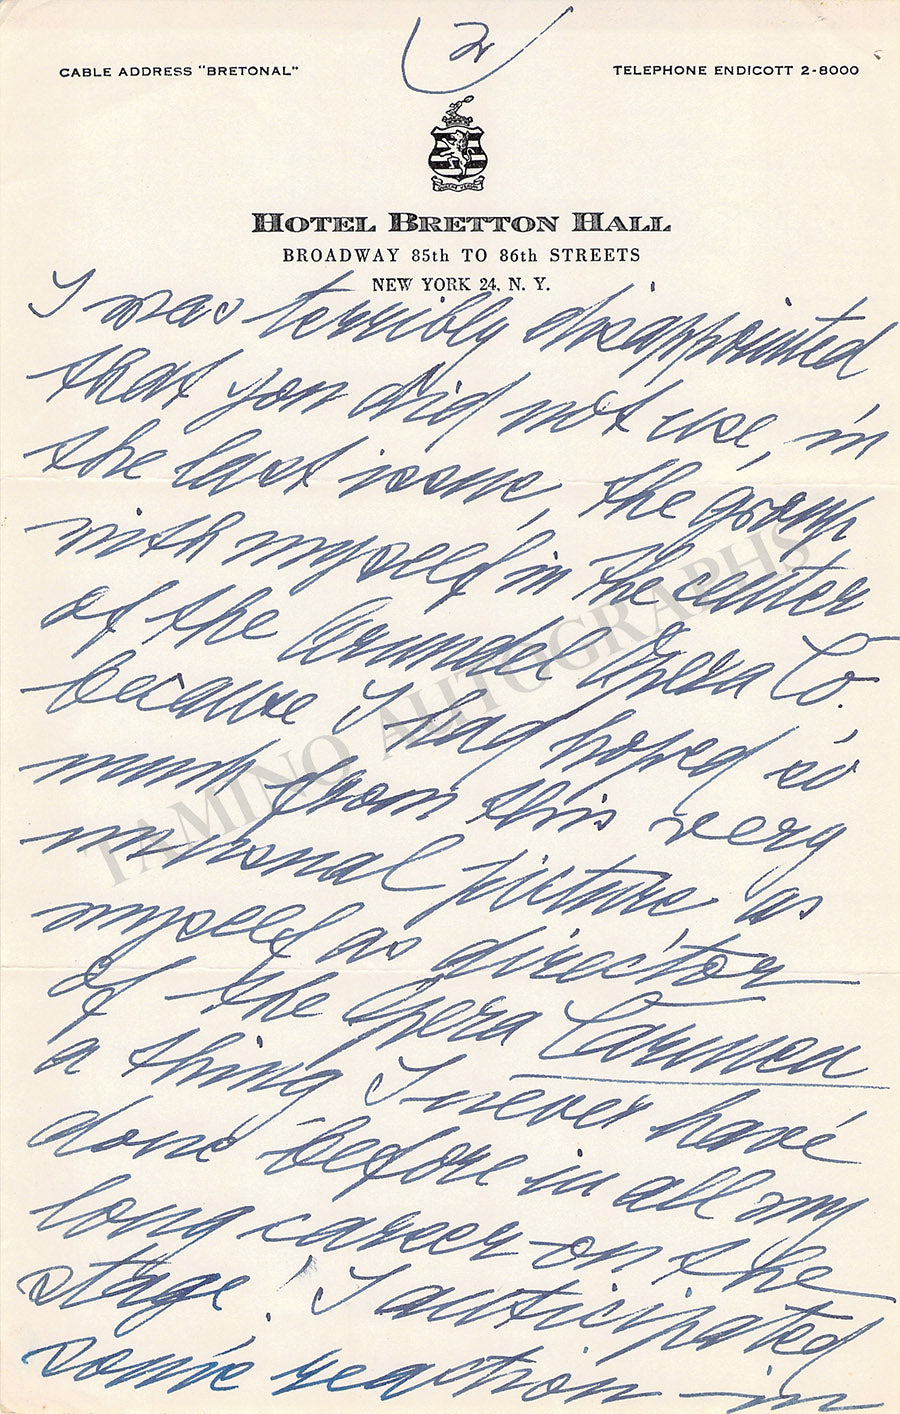 2
CABLE ADDRESS "BRETONAL"
TELEPHONE ENDICOTT 2-8000
HOTEL BRETTON HALL
BROADWAY 85th TO 86th STREETS
NEW YORK 24, N. Y.
I was terribly disappointed
that you did not use, in
the last issue, the group
with myself in the center
of the Arundel Opera Co.
because I had hoped so
much from this very
unusual picture as
myself as director
of the Opera Carmen
a thing I never have
done before in all my
long career on the
stage! I anticipated
some reaction - in
TAMINO AUTOGRAPHS